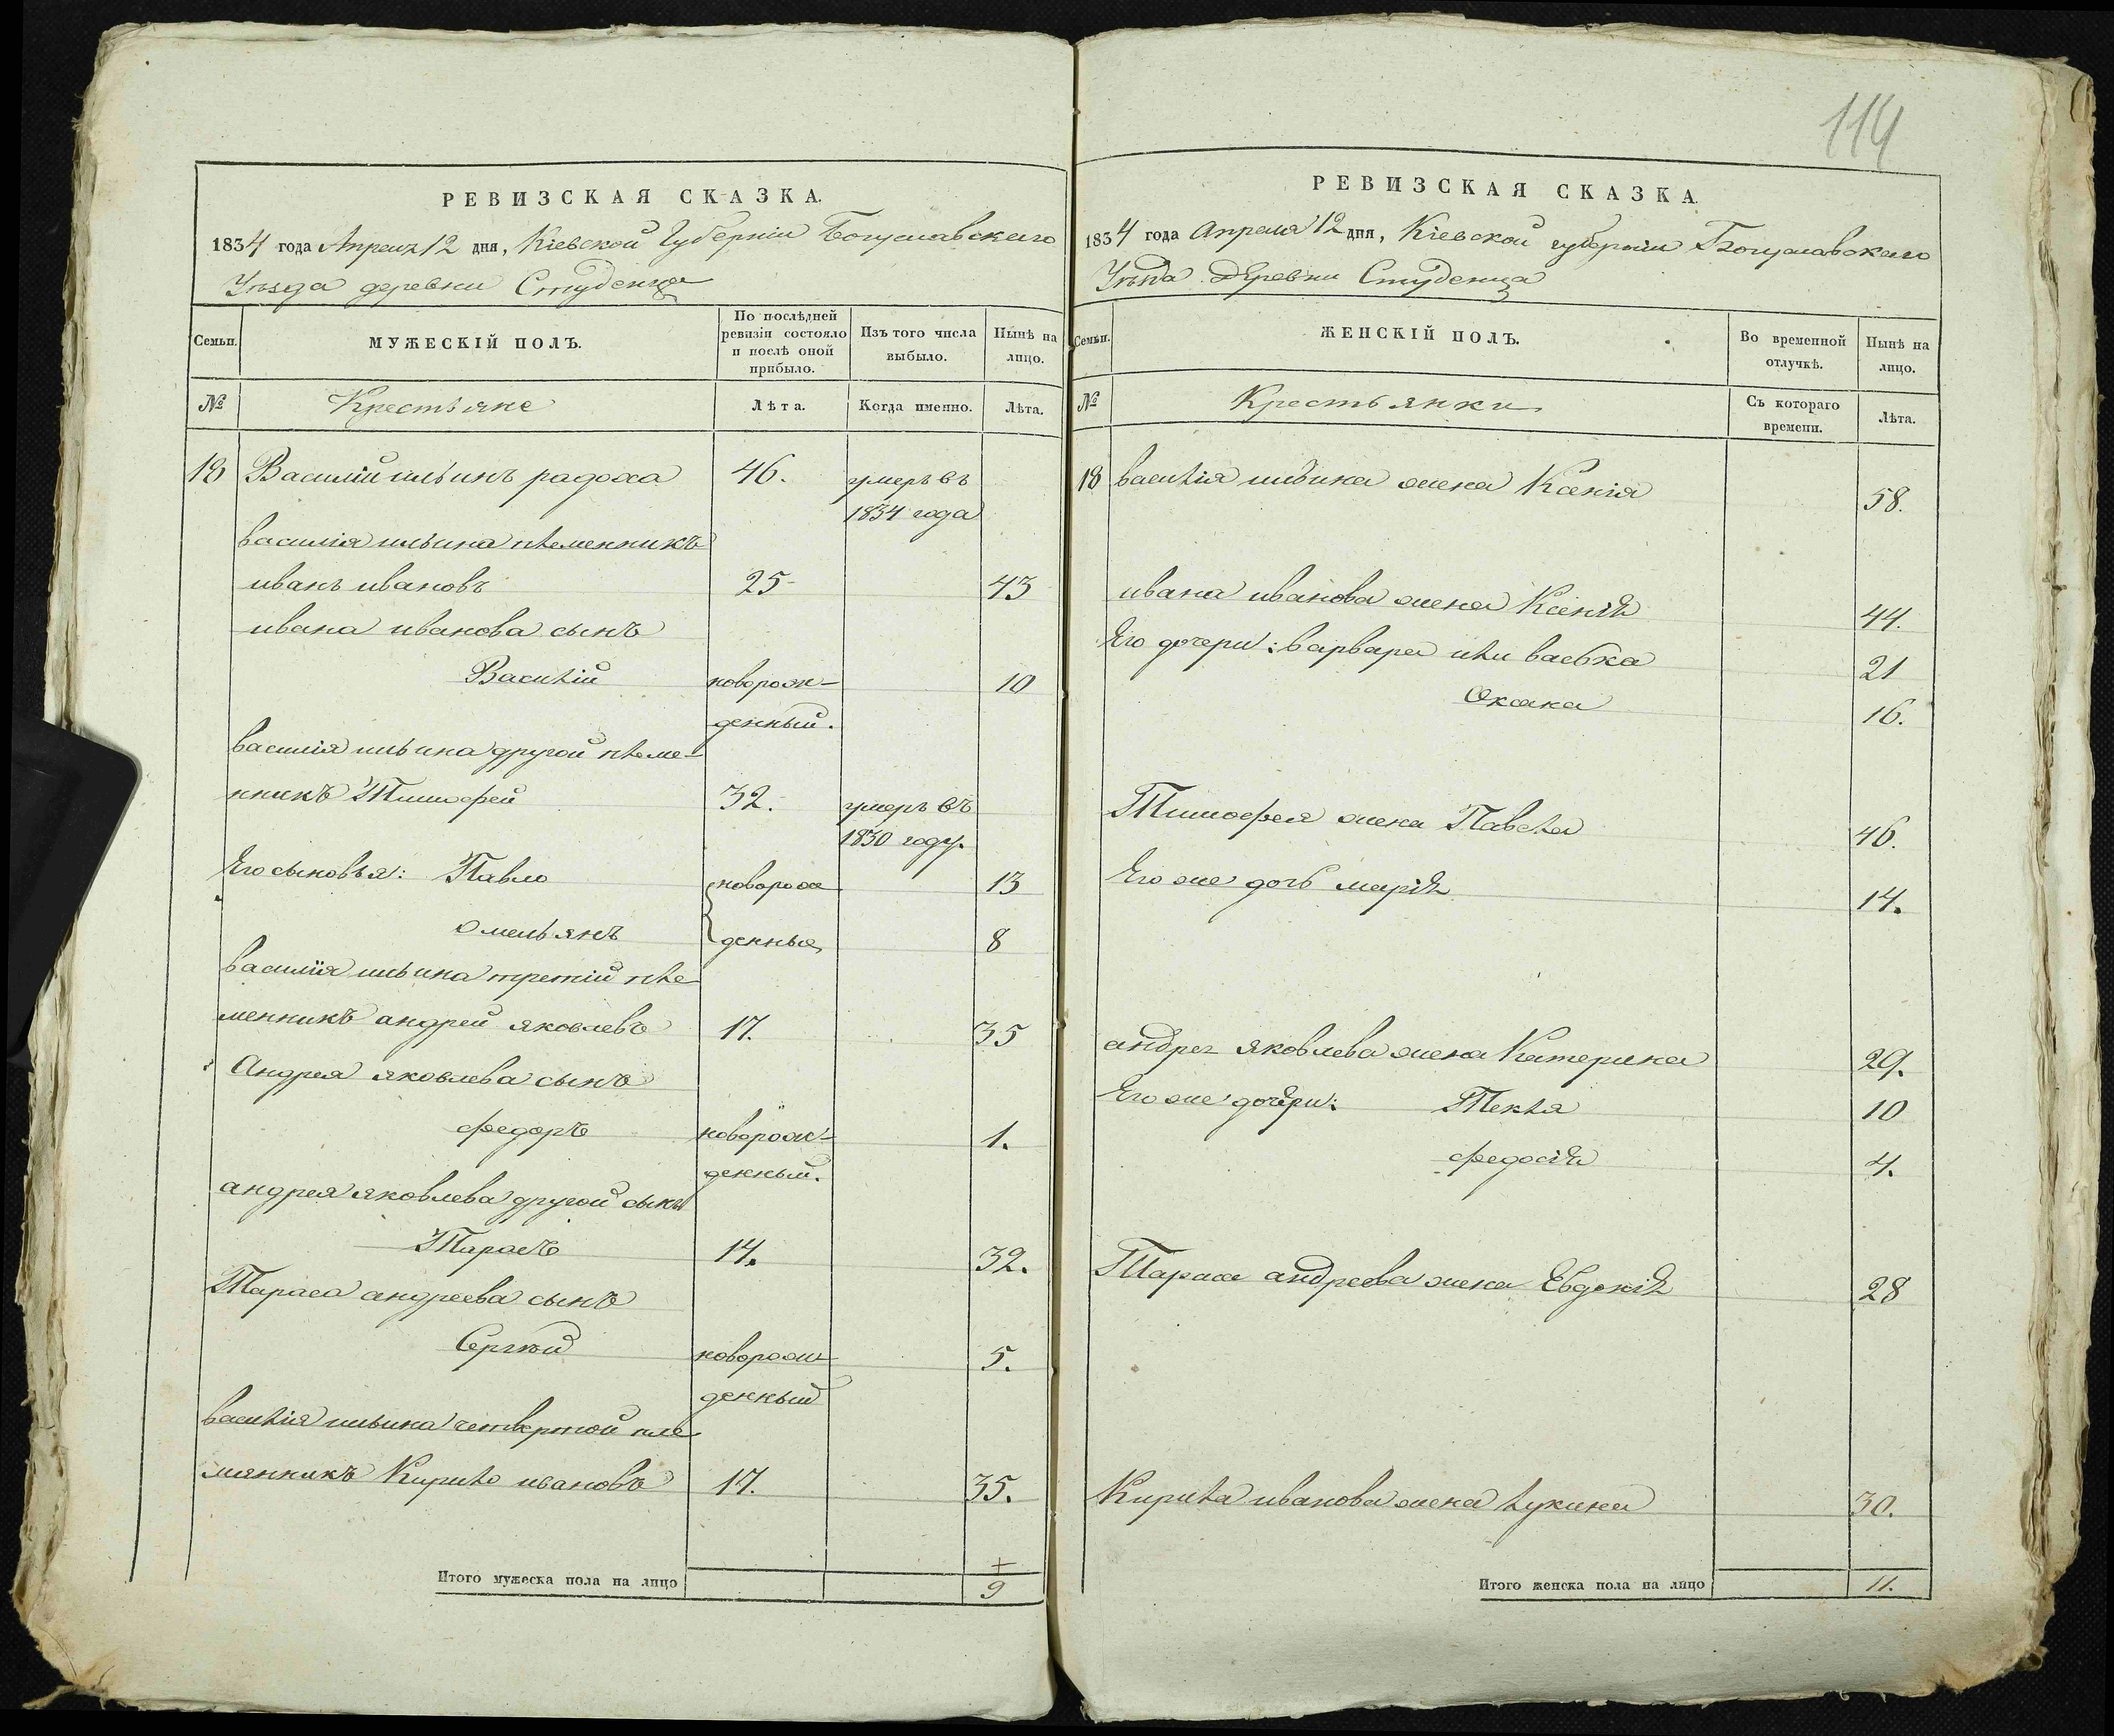 114
РЕВИЗСКАЯ СКАЗКА.
1834 года Апреля 12 дня, Кіевской Губерніи Богуславскаго
Уѣзда деревни Студенца
Семьи.
МУЖЕСКІЙ ПОЛЪ.
По послѣдней
ревизіи состояло
и послѣ оной
прибыло.
Изъ того числа
выбыло.
Нынѣ на
лицо.
№
Крестьяне
Лѣта.
Когда именно.
Лѣта.
18 Василій ильинъ радоха 46. умеръ въ
1834 года
василія ильина племенникъ
иванъ ивановъ 25 43
ивана иванова сынъ
Василій новорож- 10
денный.
василія ильина другой племе-
нникъ Тимофей 32. умеръ въ
1830 году.
Его сыновья: Павло новорож 13
омельянъ денные 8
василія ильина третій пле
менникъ андрей яковлевъ 17. 35
Андрея яковлева сынъ
федоръ новорож- 1.
денный.
андрея яковлева другой сынъ
Тарасъ 14. 32.
Тараса андреева сынъ
Сергѣй новорож 5.
денный
василія ильина четвертой пле
мянникъ Кирило ивановъ 17. 35.
Итого мужеска пола на лицо 9
РЕВИЗСКАЯ СКАЗКА.
1834 года апреля 12 дня, Кіевской губерніи Богуславскаго
Уѣзда деревни Студенца
Семьи.
ЖЕНСКІЙ ПОЛЪ.
Во временной
отлучкѣ.
Нынѣ на
лицо.
№
Крестьянки
Съ котораго
времени.
Лѣта.
18 василія ильина жена Ксенія 58.
ивана иванова жена Ксенія 44.
Его дочери: варвара или васька 21
Оксана 16.
Тимофея жена Павела 46.
Его же дочь марія 14.
андрея яковлева жена Катерина 29.
Его же дочери: Текля 10
федосія 4.
Тараса андреева жена Евдокія 28
Кирила иванова жена лукина 30.
Итого женска пола на лицо 11.